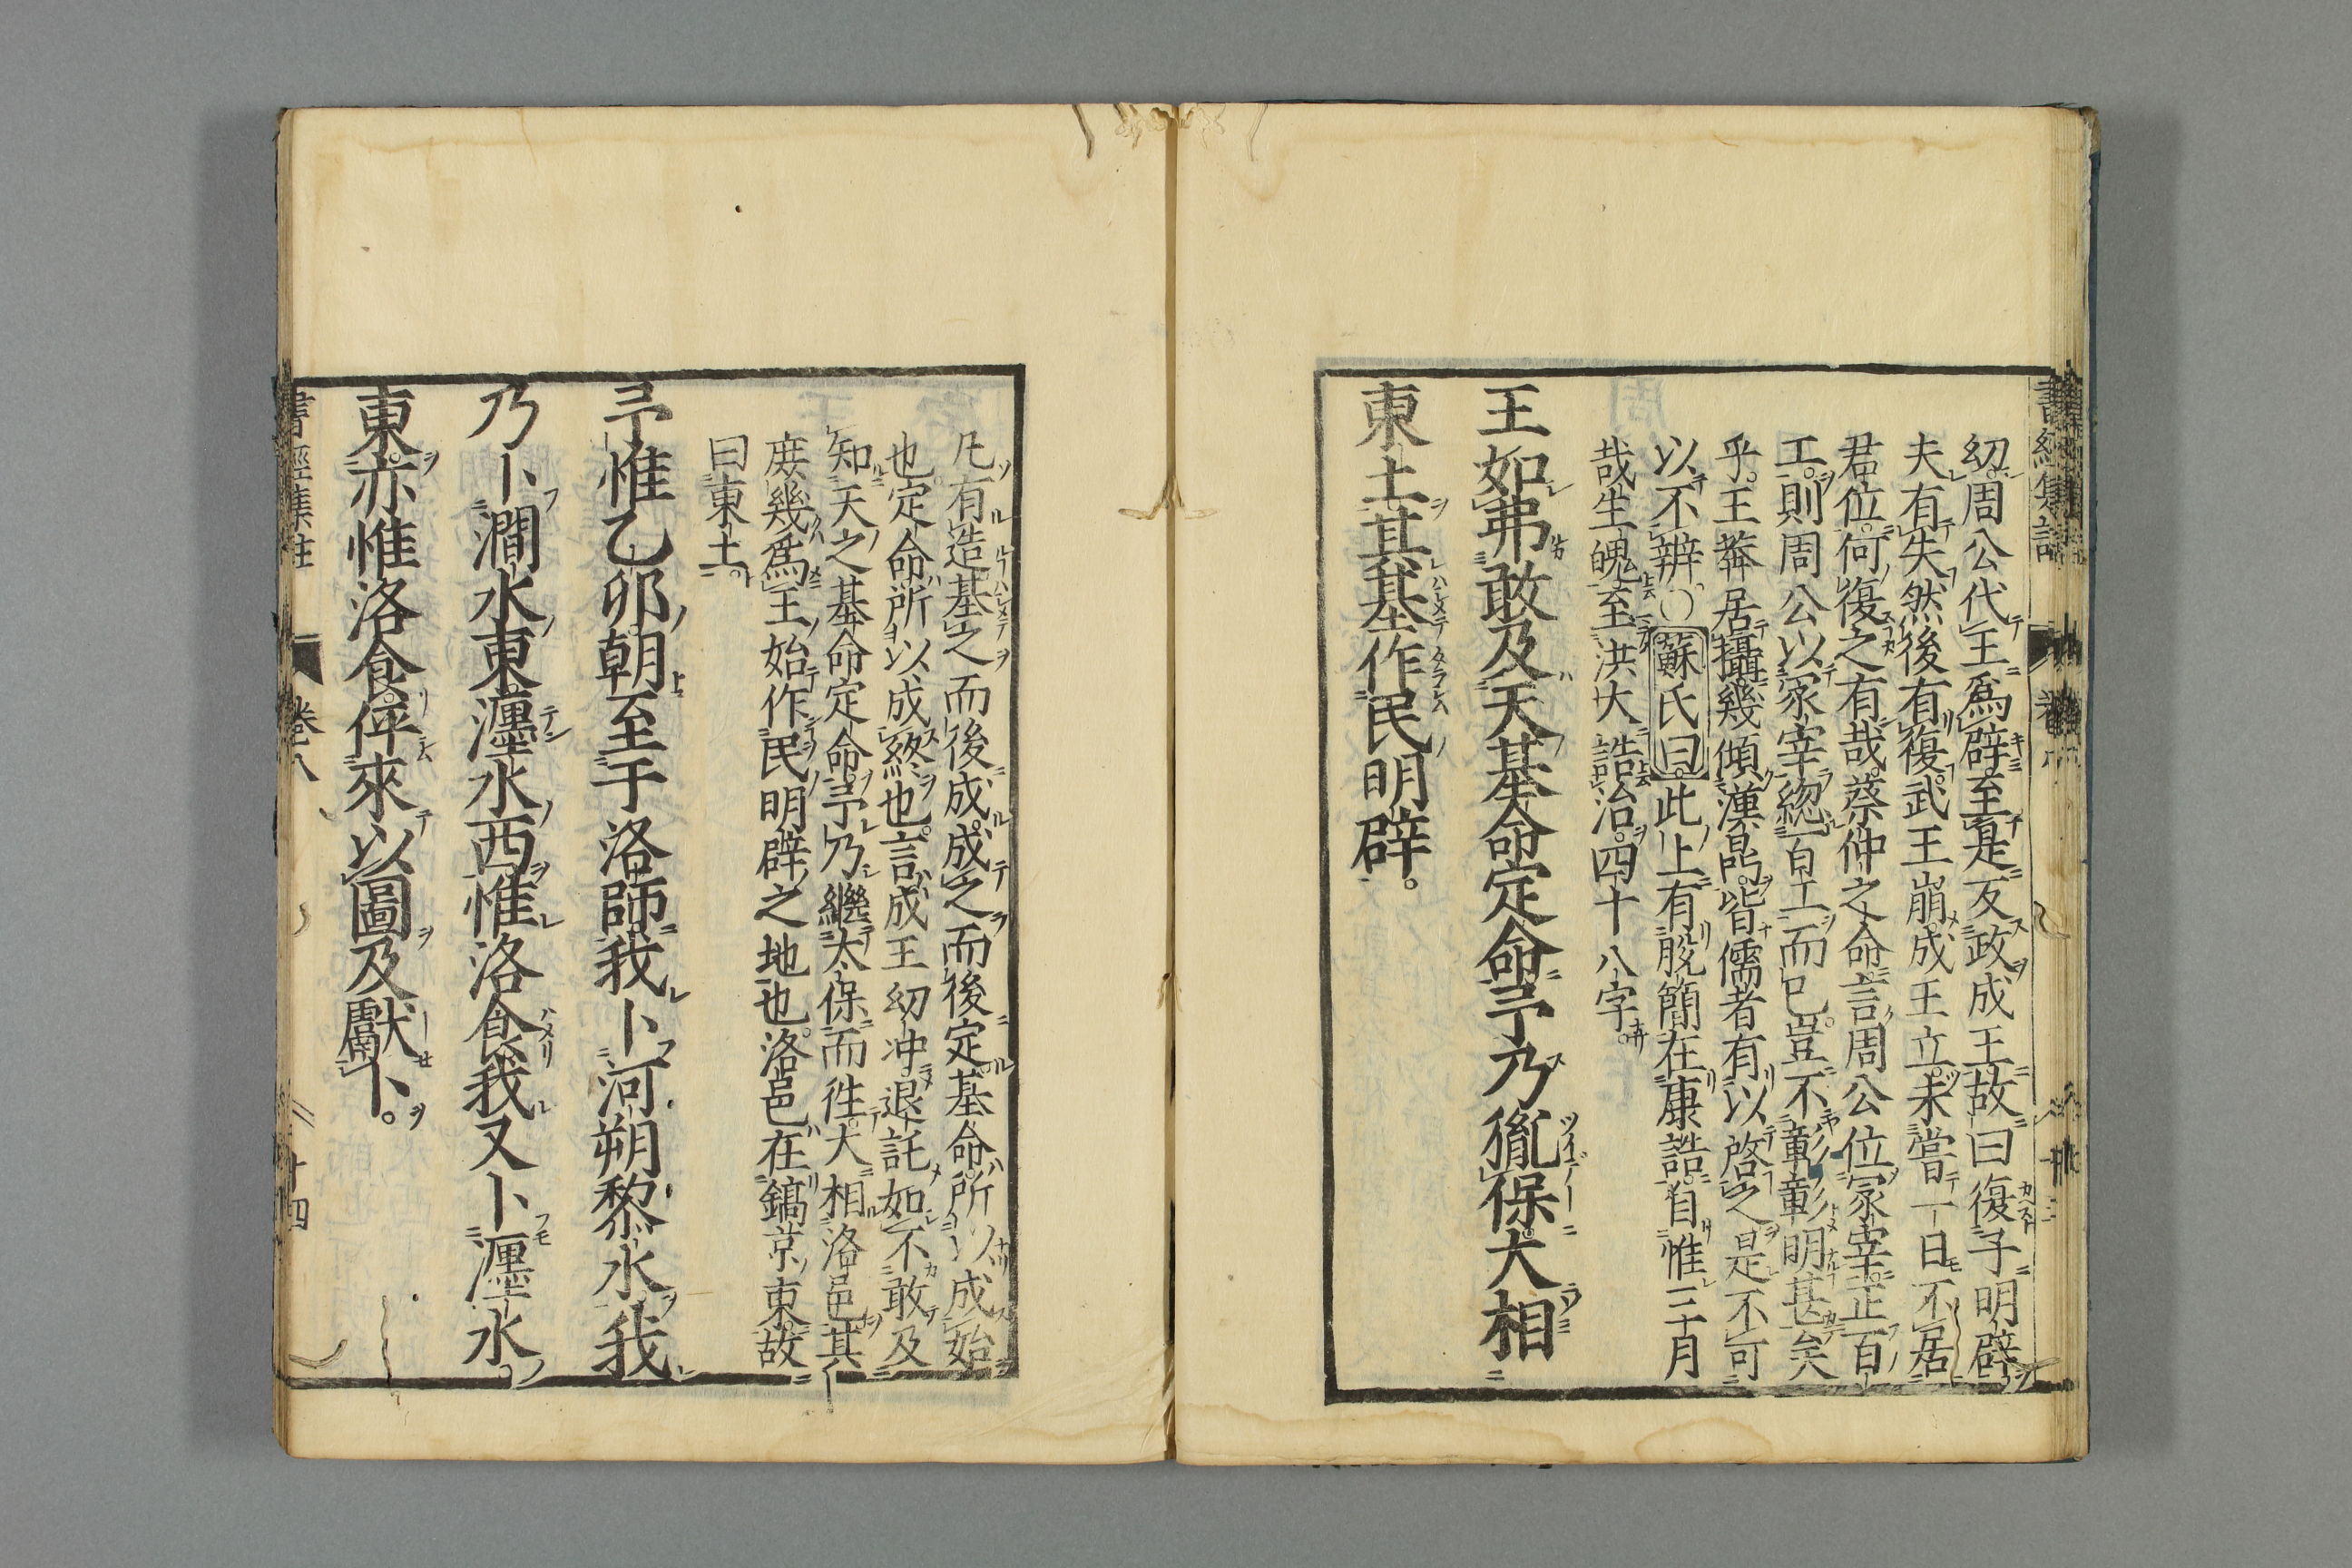 幼周公代王爲辟至是反政成王故曰復子明辟
夫有失然後有復武王崩成王立未嘗一日不居
君位何復之有哉蔡仲之命言周公位冢宰正百
工則周公以冢宰緫百工而已豈不彰彰明甚矣
乎王莽居攝幾傾漢鼎皆儒者有以啓之是不可
以不辨○蘇氏曰此上有脫簡在康誥自惟三月
哉生魄至洪大誥治四十八字
王如弗敢及天基命定命予乃胤保大相
東土其基作民明辟。
凡有造基之而後成成之而後定基命所以成始
也定命所以成終也言成王幼冲退託如不敢及
知天之基命定命予乃繼太保而徃大相洛邑其
庶幾爲王始作民明辟之地也洛邑在鎬京東故
曰東土
予惟乙卯朝至于洛師我卜河朔黎水我
乃卜澗水東瀍水西惟洛食我又卜瀍水
東亦惟洛食伻來以圖及獻卜。
書經集註 卷八 十四